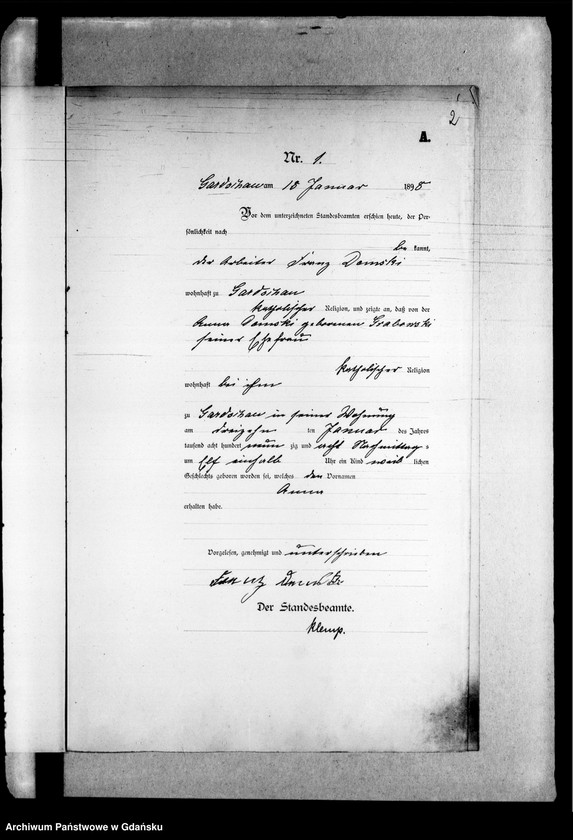 2
A.
Nr. 1.
Gardschau am 18 Januar 1898
Vor dem unterzeichneten Standesbeamten erschien heute, der Per-
sönlichkeit nach
be kannt,
der Arbeiter Franz Demski
wohnhaft zu Gardschau
katholischer Religion, und zeigte an, daß von der
Anna Demski geborenen Grabowski
seiner Ehefrau
katholischer Religion
wohnhaft bei ihm
zu Gardschau in seiner Wohnung
am dreizehn ten Januar des Jahres
tausend acht hundert neun zig und acht Nachmittags
um Elf einhalb Uhr ein Kind weib lichen
Geschlechts geboren worden sei, welches den Vornamen
Anna
erhalten habe.
Vorgelesen, genehmigt und unterschrieben
Franz Demski
Der Standesbeamte.
Klemp.
Archiwum Państwowe w Gdańsku